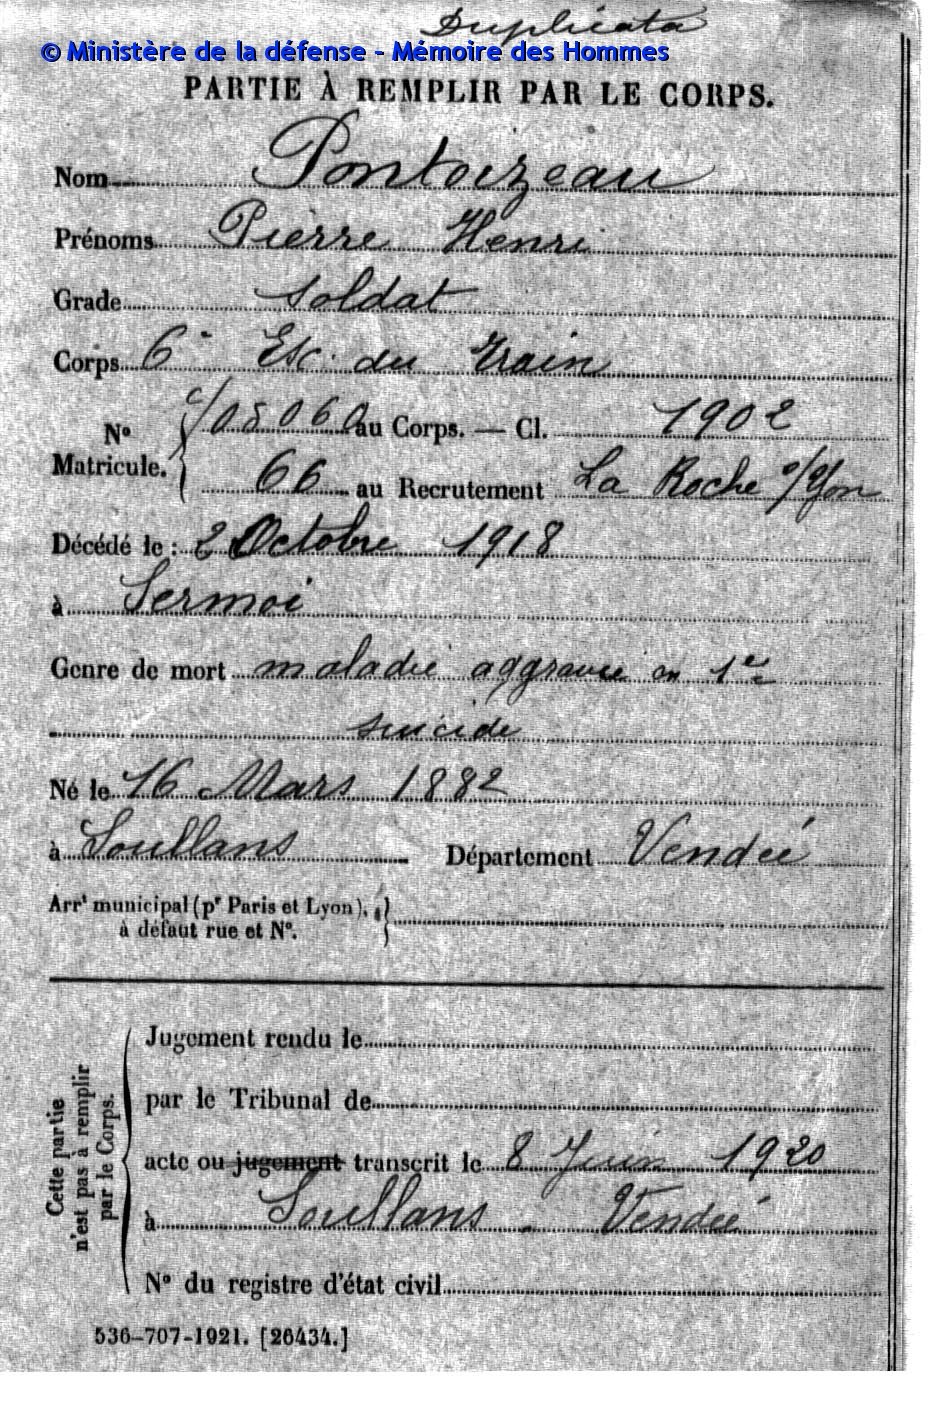 Duplicata
© Ministère de la défense - Mémoire des Hommes
PARTIE À REMPLIR PAR LE CORPS.
Nom Pontoizeau
Prénoms Pierre Henri
Grade Soldat
Corps 6e Esc. du Train
No Matricule. { c/05060 au Corps. — Cl. 1902
66 au Recrutement La Roche s/Yon
Décédé le : 2 Octobre 1918
à Sermoi
Genre de mort maladie aggravée en 1ce
suicide
Né le 16 Mars 1882
à Soullans Département Vendée
Arrt municipal (pr Paris et Lyon), }
à défaut rue et No.
Cette partie
n'est pas à remplir
par le Corps.
Jugement rendu le
par le Tribunal de
acte ou jugement transcrit le 8 Juin 1920
à Soullans - Vendée
No du registre d'état civil
536-707-1921. [26434.]